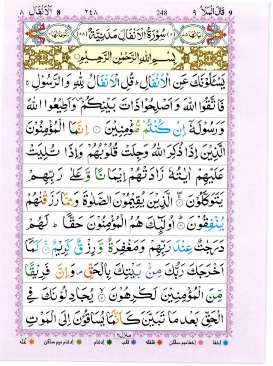 قَالَ الْمَلَأُ ٩ 248 ٢٤٨ اَلْاَنْفَالُ ٨
سُوْرَةُ الْاَنْفَالِ مَدَنِيَّةٌ
بِسْمِ اللّٰهِ الرَّحْمٰنِ الرَّحِيْمِ
يَسْـَٔلُوْنَكَ عَنِ الْاَنْفَالِ ؕ قُلِ الْاَنْفَالُ لِلّٰهِ وَالرَّسُوْلِ ۚ
فَاتَّقُوا اللّٰهَ وَاَصْلِحُوْا ذَاتَ بَيْنِكُمْ ۪ وَاَطِيْعُوا اللّٰهَ
وَرَسُوْلَهٗۤ اِنْ كُنْتُمْ مُّؤْمِنِيْنَ ۝ اِنَّمَا الْمُؤْمِنُوْنَ
الَّذِيْنَ اِذَا ذُكِرَ اللّٰهُ وَجِلَتْ قُلُوْبُهُمْ وَاِذَا تُلِيَتْ
عَلَيْهِمْ اٰيٰتُهٗ زَادَتْهُمْ اِيْمَانًا وَّعَلٰى رَبِّهِمْ
يَتَوَكَّلُوْنَ ۝ الَّذِيْنَ يُقِيْمُوْنَ الصَّلٰوةَ وَمِمَّا رَزَقْنٰهُمْ
يُنْفِقُوْنَ ۝ اُولٰٓئِكَ هُمُ الْمُؤْمِنُوْنَ حَقًّا ؕ لَهُمْ
دَرَجٰتٌ عِنْدَ رَبِّهِمْ وَمَغْفِرَةٌ وَّرِزْقٌ كَرِيْمٌ ۝ كَمَاۤ
اَخْرَجَكَ رَبُّكَ مِنْۢ بَيْتِكَ بِالْحَقِّ ۪ وَاِنَّ فَرِيْقًا
مِّنَ الْمُؤْمِنِيْنَ لَكٰرِهُوْنَ ۝ يُجَادِلُوْنَكَ فِي
الْحَقِّ بَعْدَ مَا تَبَيَّنَ كَاَنَّمَا يُسَاقُوْنَ اِلَى الْمَوْتِ